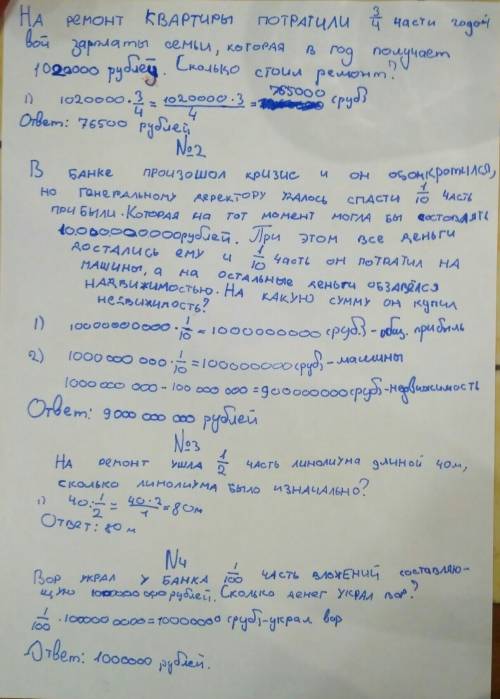 На ремонт квартиры потратили 3/4 части годо
вой зарплаты семьи, которая в год получает
1020000 рублей. Сколько стоил ремонт?
1) 1020000 · 3/4 = 1020000 · 3 / 4 = 765000 (руб)
Ответ: 76500 рублей
№2
В банке произошол кризис и он обонкротился,
но генеральному деректору удалось спасти 1/10 часть
прибыли. Которая на тот момент могла бы состовлять
10.000.000.000 рублей. При этом все деньги
достались ему и 1/10 часть он потратил на
машины, а на остальные деньги обзавёлся
надвижимостью. На какую сумму он купил
недвижилость?
1) 10000000000 · 1/10 = 1000000000 (руб.) - общ. прибыль
2) 1000 000 000 · 1/10 = 100000000 (руб) - машины
1000 000 000 - 100 000 000 = 900000000 (руб) - недвижимость
Ответ: 9000 000 000 рублей
№3
На ремонт ушла 1/2 часть линолиума длиной 40м,
сколько линолиума было изначально?
1) 40 : 1/2 = 40 · 2 / 1 = 80м
Ответ: 80 м
№4
Вор украл у банка 1/100 часть вложений составляю-
щую 100000 000 рублей. Сколько денег украл вор?
1/100 · 100000 0000 = 10000000 (руб) - украл вор
Ответ: 1000000 рублей.